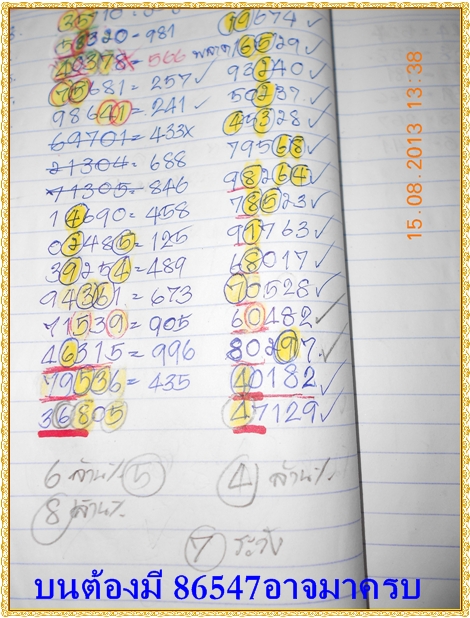 36710 =
19674 ✓
58320 - 981
6529 ✓
40378 = 566 พลาด
93240 ✓
75681 = 257 ✓
50237 ✓
98641 = 241 ✓
45328 ✓
69701 = 433x
79568
21304 - 688
98264 ✓
71305 = 846
78523 ✓
14690 = 458
91763 ✓
02485 = 125
68017 ✓
39254 = 489
70528 ✓
94361 = 673
60482 ✓
71539 = 905
80297. ✓
46315 = 996
40182 ✓
79536 = 435
47129 ✓
36805
6 ล้าน% 5
4 ล้าน%
8 ล้าน%
7 ระวัง
บนต้องมี 86547อาจมาครบ
15.08.2013 13:38